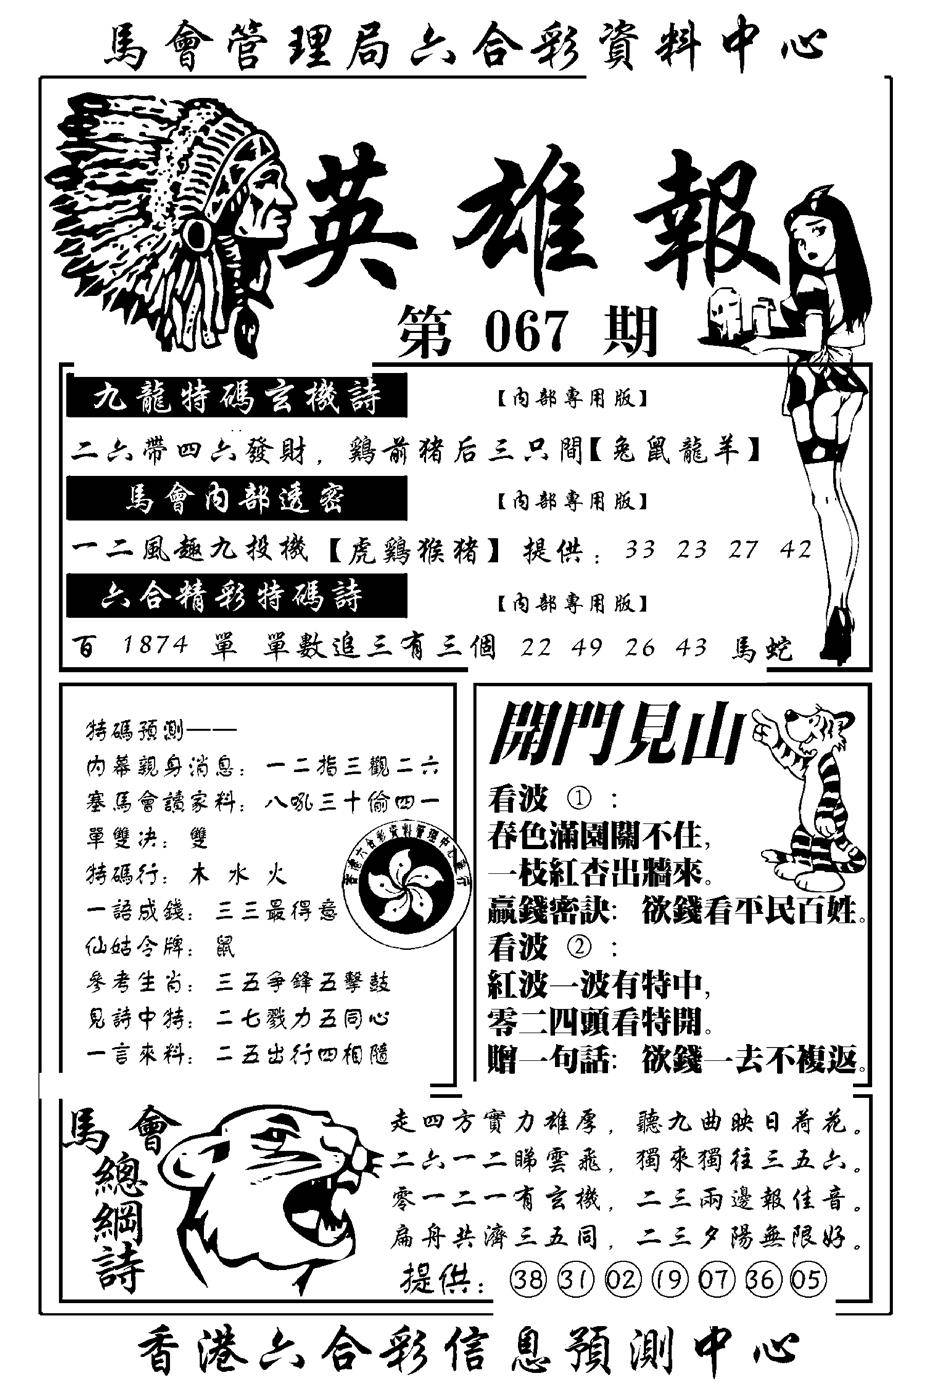 馬會管理局六合彩資料中心
英雄報
第 067 期
九龍特碼玄機詩 【內部專用版】
二六帶四六發財，鷄前猪后三只間【兔鼠龍羊】
馬會內部透密 【內部專用版】
一二風趣九投機【虎鷄猴猪】提供：33 23 27 42
六合精彩特碼詩 【內部專用版】
百 1874 單 單數追三有三個 22 49 26 43 馬蛇
特碼預測——
內幕親身消息：一二指三觀二六
塞馬會讀家料：八吼三十偷四一
單雙决：雙
特碼行：木 水 火
一語成錢：三三最得意
仙姑令牌：鼠
參考生肖：三五争鋒五擊鼓
見詩中特：二七戮力五同心
一言來料：二五出行四相隨
香港六合彩資料管理中心發行
開門見山
看波 ①：
春色滿園關不住,
一枝紅杏出牆來。
贏錢密訣：欲錢看平民百姓。
看波 ②：
紅波一波有特中,
零二四頭看特開。
贈一句話：欲錢一去不複返。
馬會
總綱詩
走四方實力雄厚，聽九曲映日荷花。
二六一二睇雲飛，獨來獨往三五六。
零一二一有玄機，二三兩邊報佳音。
扁舟共濟三五同，二三夕陽無限好。
提供：㊳ ㉛ 02 ⑲ 07 ㊱ 05
香港六合彩信息預測中心